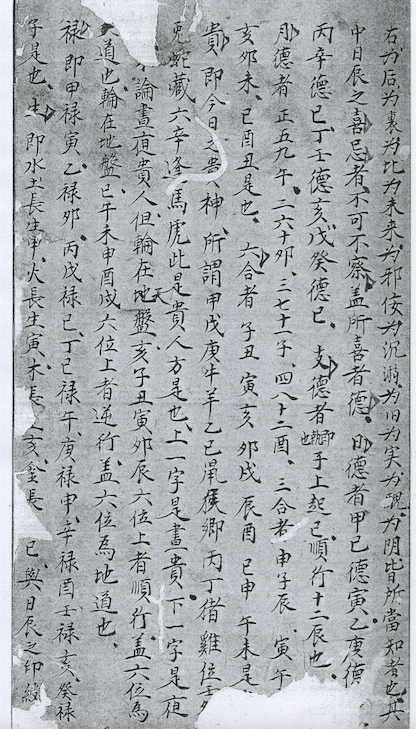 右为后为裏为比为未来为邪佞为沉溺为旧为实为魂为阴皆所當知者也其
中日辰之喜忌者不可不察盖所喜者德日德者甲己德寅乙庚德
丙辛德巳丁壬德亥戊癸德巳支德者即執也子上起巳順行十二辰也
月德者正五九午二六十卯三七十一子四八十二酉三合者申子辰寅午
亥卯未巳酉丑是也六合者子丑寅亥卯戌辰酉巳申午未是
貴即今日之貴神所謂甲戊庚牛羊乙己鼠猴郷丙丁猪雞位壬
兎蛇藏六辛逢馬虎此是貴人方是也上一字是晝貴下一字是夜
論晝夜貴人但輪在天地盤亥子丑寅卯辰六位上者順行盖六位為
天道也輪在地盤巳午未申酉戌六位上者逆行盖六位為地道也
禄即甲禄寅乙禄卯丙戊禄巳丁己禄午庚禄申辛禄酉壬禄亥癸禄
子是也生即水土長生申火長生寅木長亥金長巳與日辰之印綬